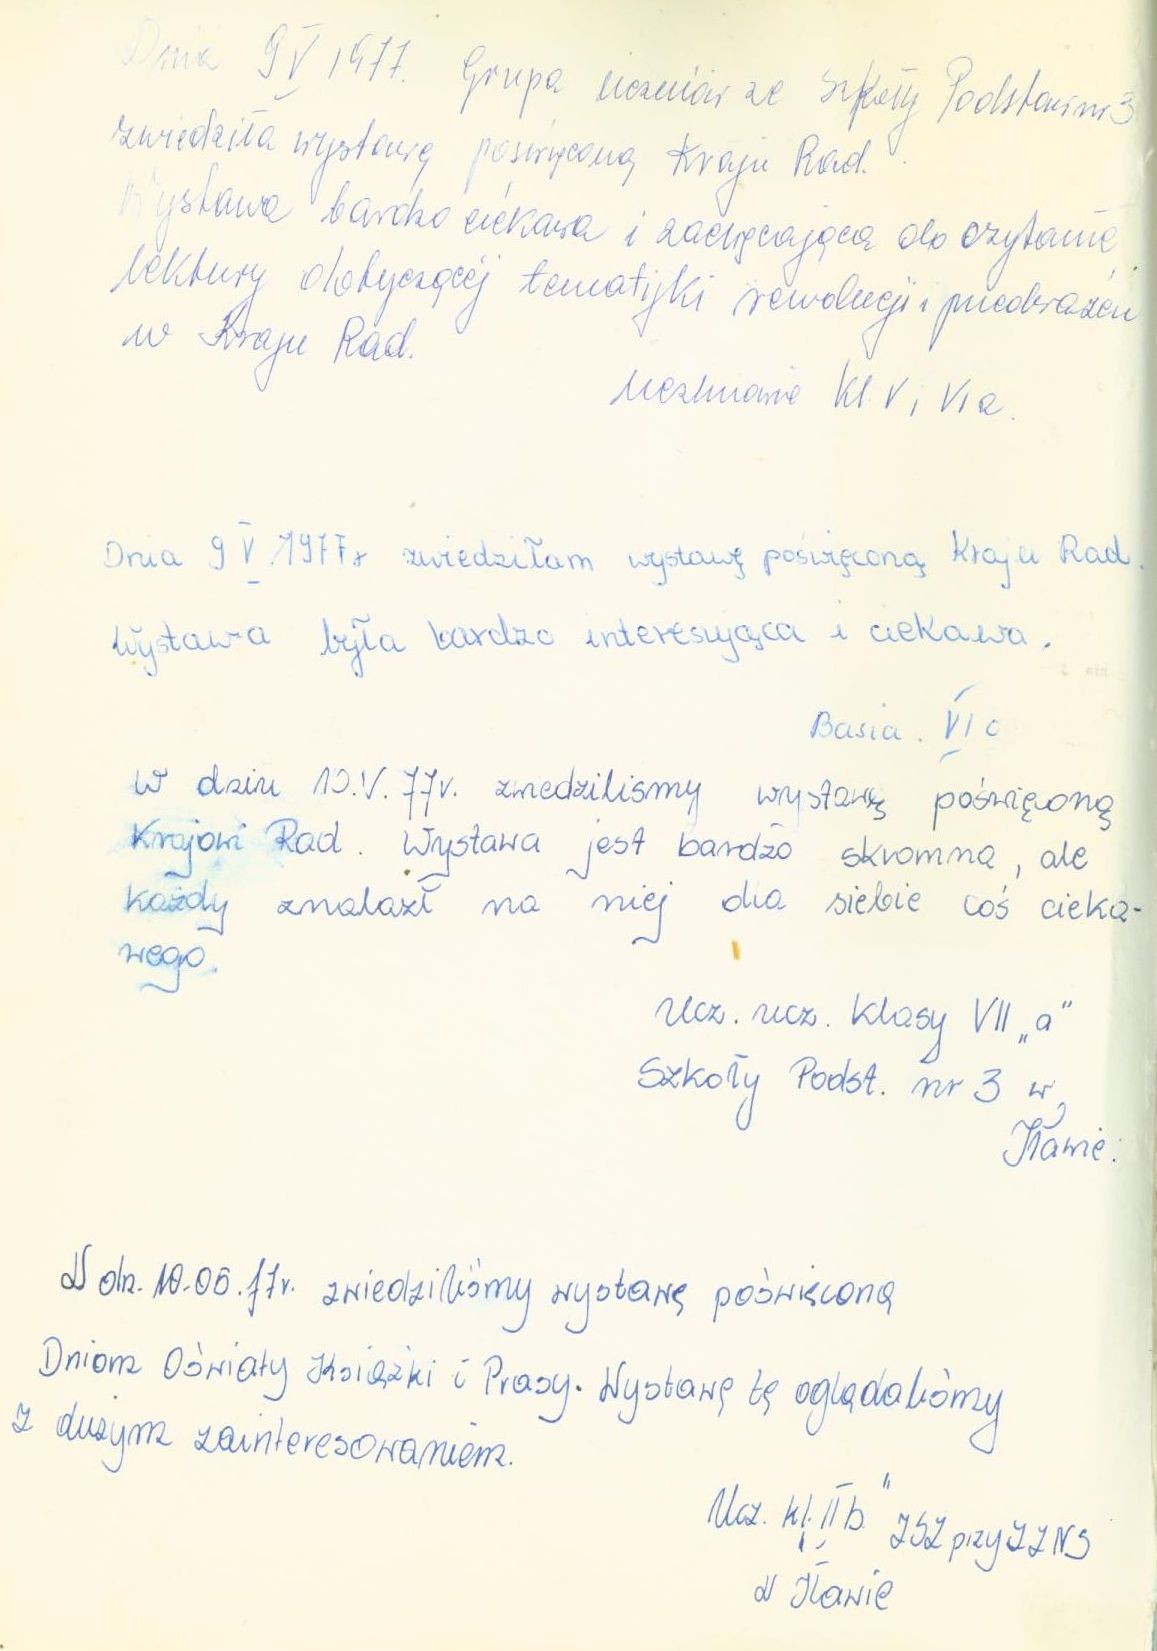 Dnia 9 V 1977. Grupa uczniów ze Szkoły Podstaw nr 3
zwiedziła wystawę poświęconą Kraju Rad.
Wystawa bardzo ciekawa i zachęcająca do czytania
lektury dotyczącej tematyki rewolucji i przeobrażeń
w Kraju Rad.
Uczniowie Kl. V i VI a.
Dnia 9 V 1977r zwiedziłam wystawę poświęconą Kraju Rad.
Wystawa była bardzo interesująca i ciekawa.
Basia. VI c
W dniu 10.V.77r. zwiedzilismy wystawę poświęconą
Krajowi Rad. Wystawa jest bardzo skromna, ale
każdy znalazł na niej dla siebie coś cieka-
wego.
Ucz. ucz. klasy VII „a"
Szkoły Podst. nr 3 w
Iławie.
W dn. 10.05.77r. zwiedziliśmy wystawę poświęconą
Dniom Oświaty Książki i Prasy. Wystawę tę oglądaliśmy
z dużym zainteresowaniem.
Ucz. kl. „II b" ZSZ przy ZZNS
w Iławie